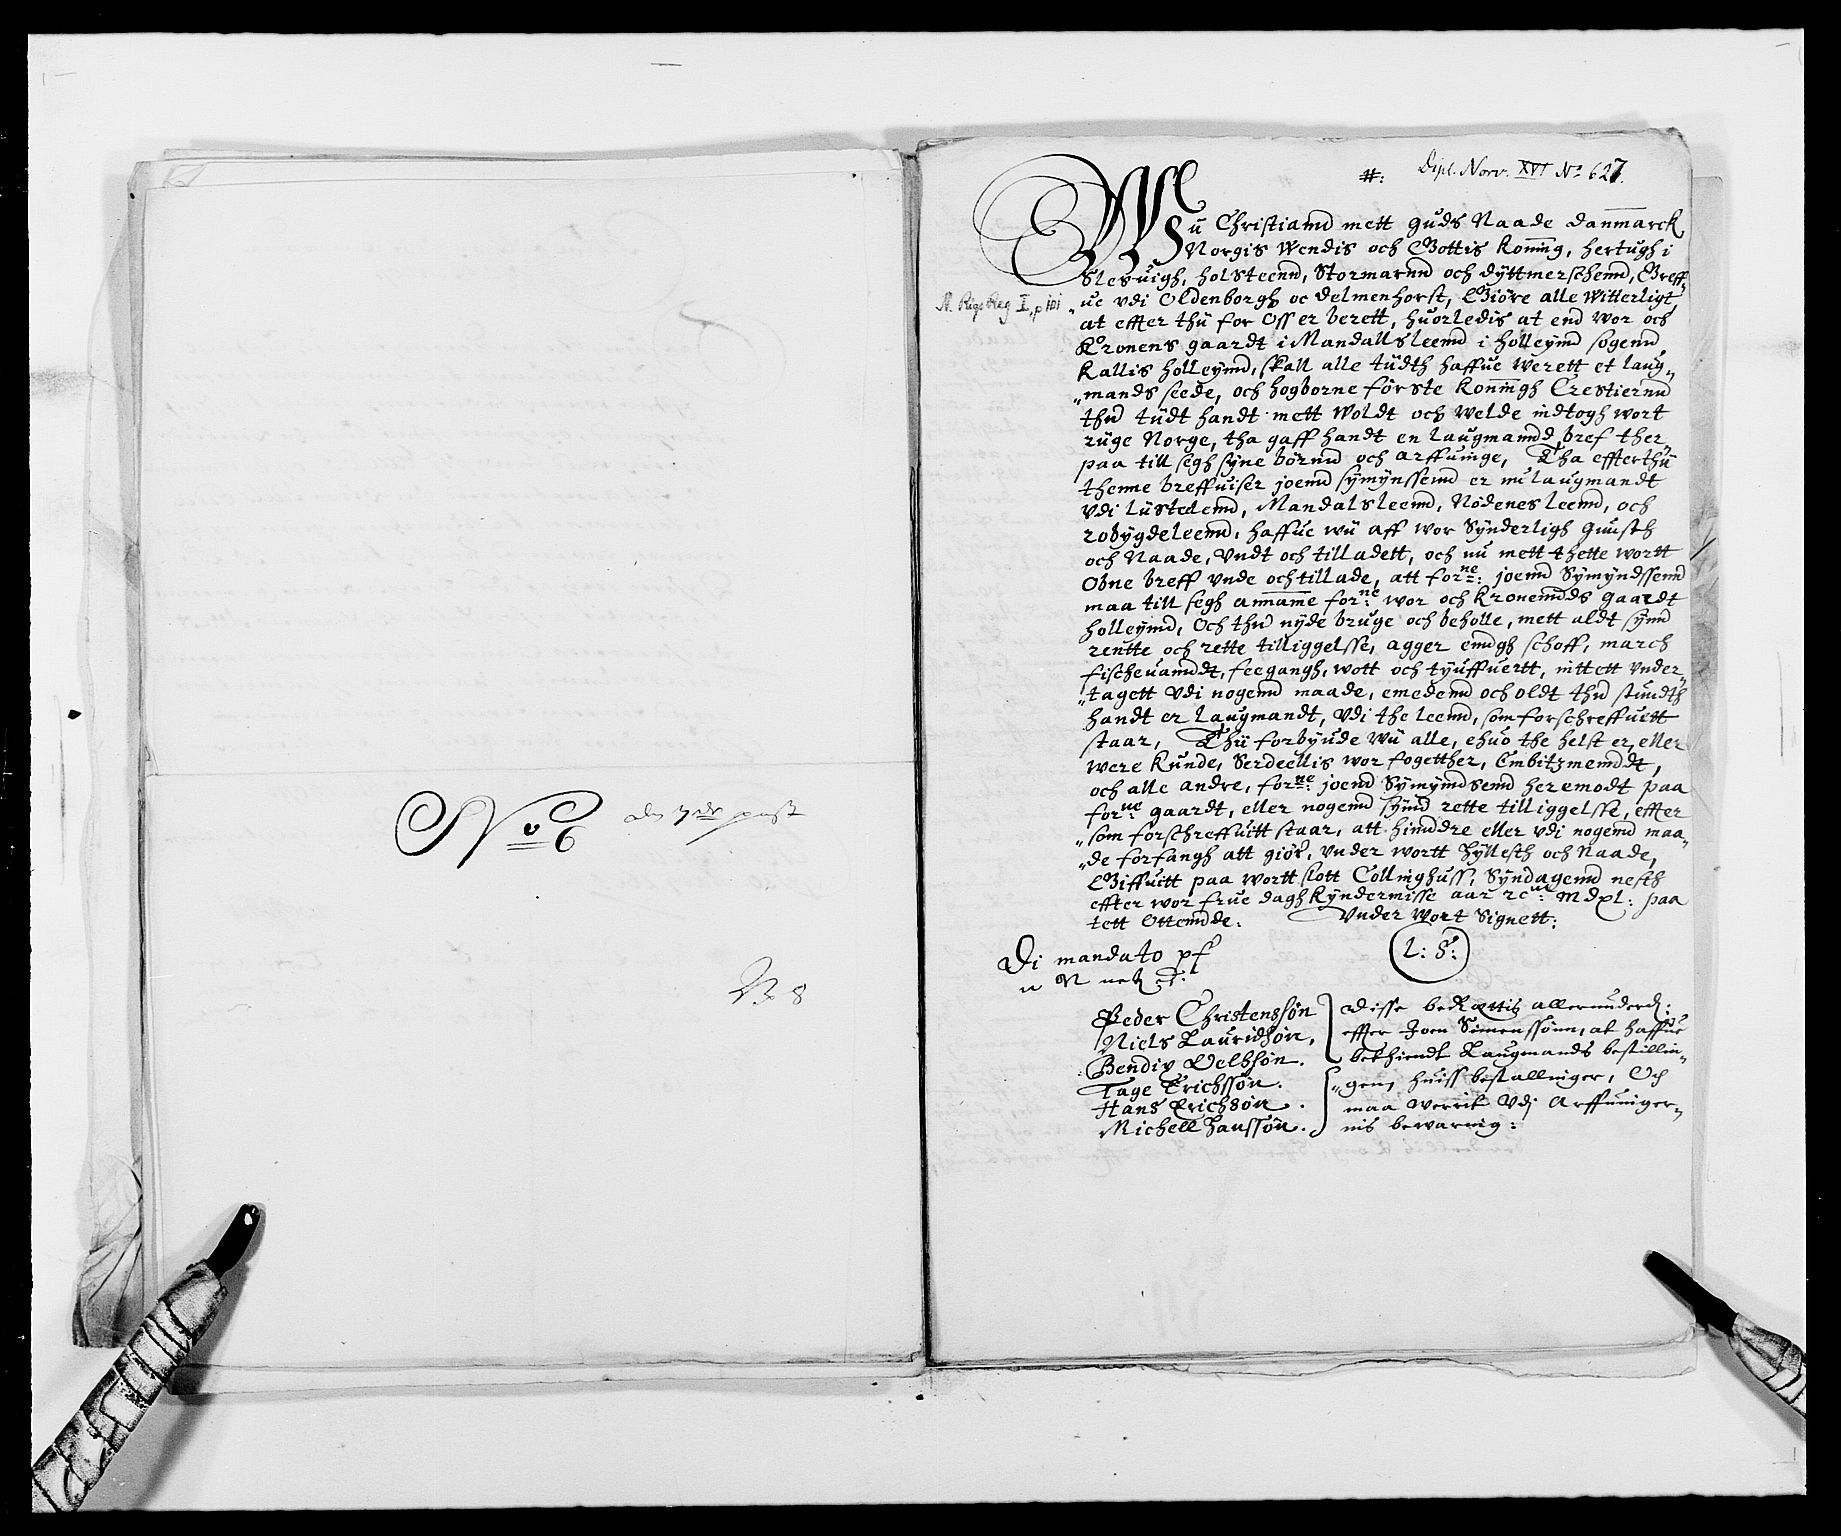 No 6
den 7de post
No 8
#:
Dipl. Norv. XVI No 627.
N. Rigs Reg I, p 101
Wü Christiamd mett guds Naade danmarck
Norgis Wendis och Gottis koning, hertugh i
Slesuigh, holsteend, Stormarnd och dyttmerschemd, Greff„
„ue vdi Oldenborgh oc delmenhorst, Giöre alle Witterligt
at effter thü for Oss er berett, huorledis at end wor och
Kronens gaardt i Mandallsleemd i holleymd sogend
kallis holleymd, skall alle tüdth haffue Werett et laug„
„mands seede, och hogborne förste koningh Crestiernd
thnd tüdt handt mett Woldt och welde indtogh wort
rüge Norge, tha gaff handt en laugmamdd, bref ther„
paa till segh syne börnd och arffuinge, Tha effterthü
thenne breffuiser joemd symynssemd er nu laugmandt
vdi lüstelemd, Mandalsleemd, Nodenesleemd, och
robygdeleemd, haffue wü aff wor Synderligh gunsth
och Naade, vndt och tilladett, och nu mett thette wortt
Obne breff vnde och tillade, att forne: joemd Symyndssemd
maa till segh annamme forne: wor och kronemdds gaardt
holleymd, Och thnd nyde bruge och beholle, mett aldt synd
rentte och rette tilliggelsse, agger emdgh schoff, march
fischeuamddt, feegangh, wott och tyuffuertt, inttett vnder„
„tagett vdi nogemd maade, emedemd och oldt thnd stundth
handt er laugmandt, vdi the leemd, som forschreffuett
staar, Thü forbyude wü alle, ehuo the helst er, eller
were kunde, Serdeellis wor fogetther, Embitzmemddt,
och alle andre, forne: joemd Symymdsemd heremodt paa
forne gaardt, eller nogemd synd rette tilliggelsse, effter
„som forschreffuitt staar, att hinddre eller vdi nogemd maa„
„de forfangh att giör, vnder wortt hyllesth och Naade,
Giffuitt paa wortt slott Collinghuss, Syndagemd nesth
effter wor frue dagh kyndermisse aar rc: Mdxl: paa
tett Ottemdde. Vnder wort Signett:
Di mandato pf
L: S:
Peder Christenssön
Niels Lauridsön,
Bendix Velhsön.
Tage Erichssön.
Hans Erichsön.
Michell hanssön.
Disse bekettis allerunderd:
effter Joen Simenssönn, at haffue
bekhiendt Laugmands bestillin„
„gen, huiss bestallinger, Och
maa werrit vdj Arffuinger„
nis bewaring: